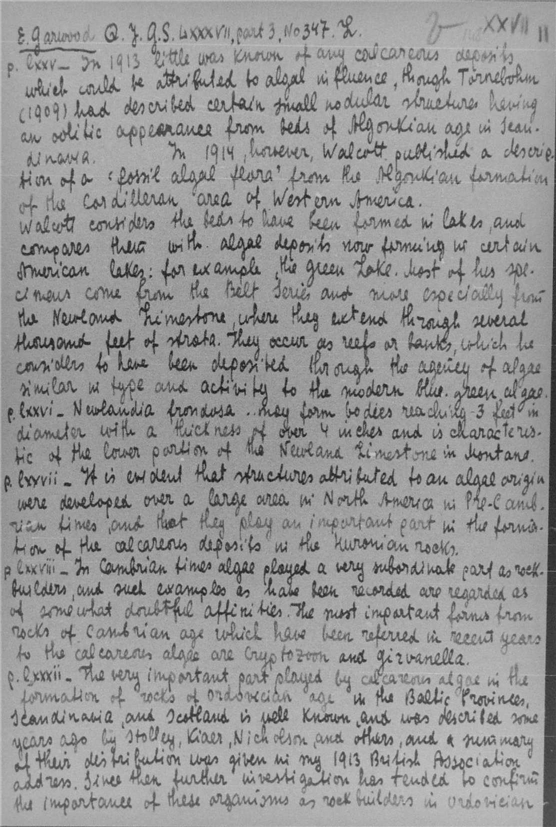 XXVII 11
E. Garwood Q. J. G. S. LXXXVII, part 3, No 347. L.
p. lxxv - In 1913 little was known of any calcareous deposits
which could be attributed to algal influence, though Törnebohm
(1909) had described certain small nodular structures having
an oolitic appearance from beds of Algonkian age in Scan-
dinavia. In 1914, however, Walcott published a descrip-
tion of a "fossil algal flora" from the Algonkian formation
of the Cordilleran area of Western America.
Walcott considers the beds to have been formed in lakes, and
compares them with algae deposits now forming in certain
American lakes: for example, the Green Lake. Most of his spe-
cimens come from the Belt Series and more especially from
the Newland Limestone, where they extend through several
thousand feet of strata. They occur as reefs or banks, which he
considers to have been deposited through the agency of algae
similar in type and activity to the modern blue-green algae.
p. lxxvi - Newlandia frondosa .. may form bodies reaching 3 feet in
diameter with a thickness of over 4 inches and is characteris-
tic of the lower portion of the Newland Limestone in Montana.
p. lxxvii - It is evident that structures attributed to an algae origin
were developed over a large area in North America in Pre-Camb-
rian times, and that they play an important part in the forma-
tion of the calcareous deposits in the Huronian rocks.
p. lxxviii - In Cambrian times algae played a very subordinate part as rock-
builders, and such examples as have been recorded are regarded as
of somewhat doubtful affinities. The most important forms from
rocks of Cambrian age which have been referred in recent years
to the calcareous algae are Cryptozoon and Girvanella.
p. lxxxii - The very important part played by calcareous algae in the
formation of rocks of Ordovician age in the Baltic Provinces,
Scandinavia, and Scotland is well known, and was described some
years ago by Stolley, Kiaer, Nicholson, and others, and a summary
of their distribution was given in my 1913 British Association
address. Since then further investigation has tended to confirm
the importance of these organisms as rock builders in Ordovician